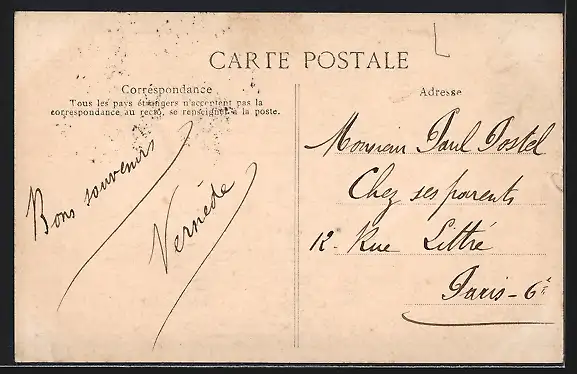 CARTE POSTALE
Correspondance
Tous les pays étrangers n'acceptent pas la
correspondance au recto, se renseigner à la poste.
Bons souvenirs
Vernède
Adresse
Monsieur Paul Postel
Chez ses parents
12 - Rue Littré
Paris - 6è